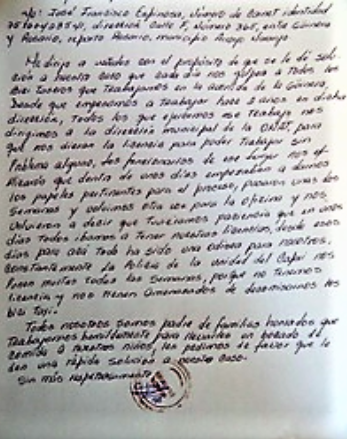 Yo: José Francisco Espinosa, número de carnet identidad
dirección Calle F, número 367, entre Güinera
y Rosario, reparto Rosario, municipio Arroyo Naranjo
Me dirijo a ustedes con el propósito de que se le dé solu-
ción a nuestro caso que cada día nos golpea a todos los
bici taxeros que Trabajamos en la avenida de la Güinera,
Desde que empezamos a Trabajar hace 2 años en dicha
dirección, Todos los que ejercemos ese Trabajo nos
dirigimos a la dirección municipal de la ONAT, para
que nos dieran la licencia para poder Trabajar sin
Problema alguno, los funcionarios de ese lugar nos
que dentro de unos días empezaban a darnos
los papeles pertinentes para el proceso, pasaron unas dos
Semanas y volvimos otra vez para la oficina y nos
Volvieron a decir que Tuviéramos paciencia que en unos
días Todos íbamos a Tener nuestras licencias, desde esos
días para acá Todo ha sido una odisea para nosotros,
Constantemente la Policía de la unidad del Capri nos
Ponen multas Todas las Semanas, porque no tenemos
licencia y nos tienen Amenazados de decomisarnos los
bici Taxi.
Todos nosotros somos padre de familias honrados que
Trabajamos honradamente para llevarles un bocado de
comida a nuestros niños, les pedimos de favor que le
den una rápida solución a nuestro caso.
Sin más respetuosamente